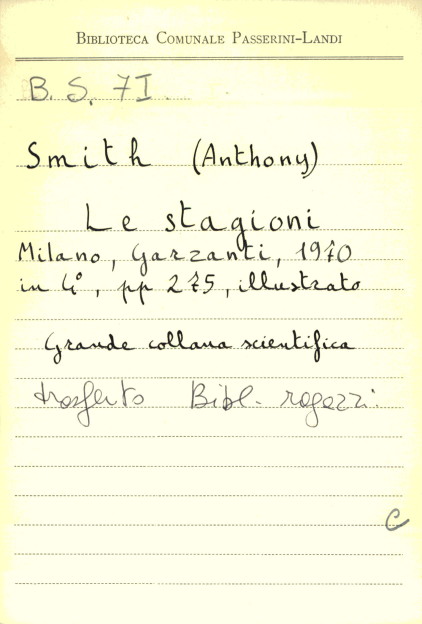 BIBLIOTECA COMUNALE PASSERINI-LANDI
B. S. 7I.
Smith (Anthony)
Le stagioni
Milano, Garzanti, 1970
in 4°, pp 275, illustrato
Grande collana scientifica
trasferito Bibl. ragazzi.
C